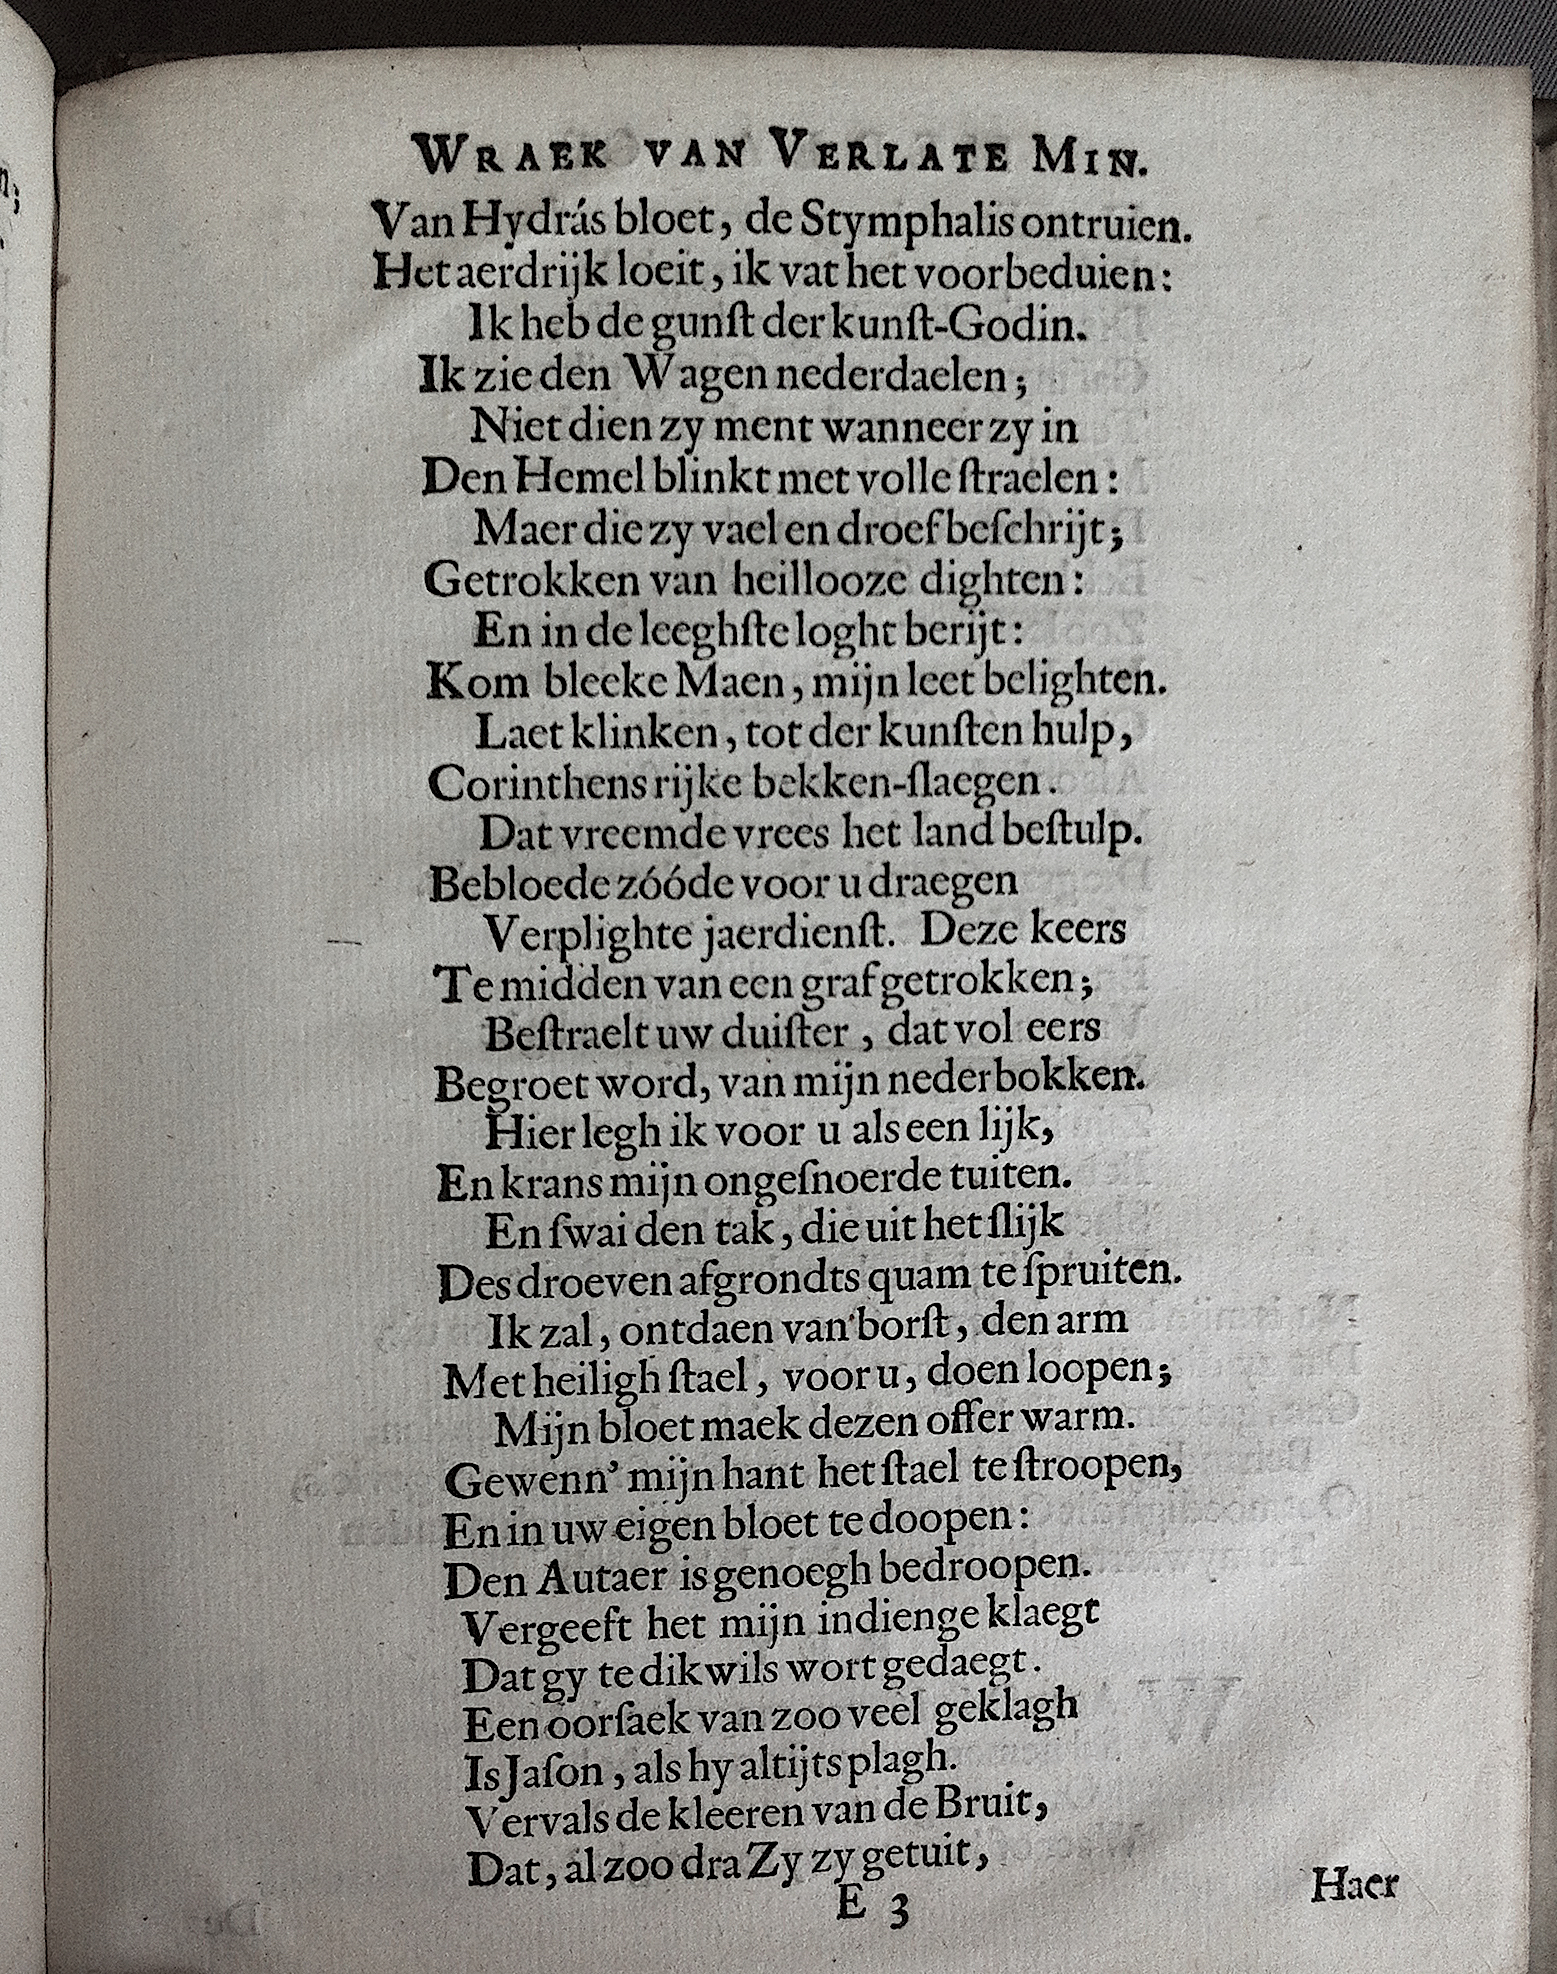 WRAEK VAN VERLATE MIN.
Van Hydrás bloet, de Stymphalis ontruien.
Het aerdrijk loeit, ik vat het voorbeduien:
Ik heb de gunſt der kunſt-Godin.
Ik zie den Wagen nederdaelen;
Niet dien zy ment wanneer zy in
Den Hemel blinkt met volle ſtraelen:
Maer die zy vael en droef beſchrijt;
Getrokken van heillooze dighten:
En in de leeghſte loght berijt:
Kom bleeke Maen, mijn leet belighten.
Laet klinken, tot der kunſten hulp,
Corinthens rijke bekken-ſlaegen.
Dat vreemde vrees het land beſtulp.
Bebloede zóóde voor u draegen
Verplighte jaerdienſt. Deze keers
Te midden van een graf getrokken;
Beſtraelt uw duiſter, dat vol eers
Begroet word, van mijn nederbokken.
Hier legh ik voor u als een lijk,
En krans mijn ongeſnoerde tuiten.
En ſwai den tak, die uit het ſlijk
Des droeven afgrondts quam te ſpruiten.
Ik zal, ontdaen van borſt, den arm
Met heiligh ſtael, voor u, doen loopen;
Mijn bloet maek dezen offer warm.
Gewenn' mijn hant het ſtael te ſtroopen,
En in uw eigen bloet te doopen:
Den Autaer is genoegh bedroopen.
Vergeeft het mijn indien ge klaegt
Dat gy te dikwils wort gedaegt.
Een oorſaek van zoo veel geklagh
Is Jaſon, als hy altijts plagh.
Vervals de kleeren van de Bruit,
Dat, al zoo dra Zy zy getuit,
E 3
Haer